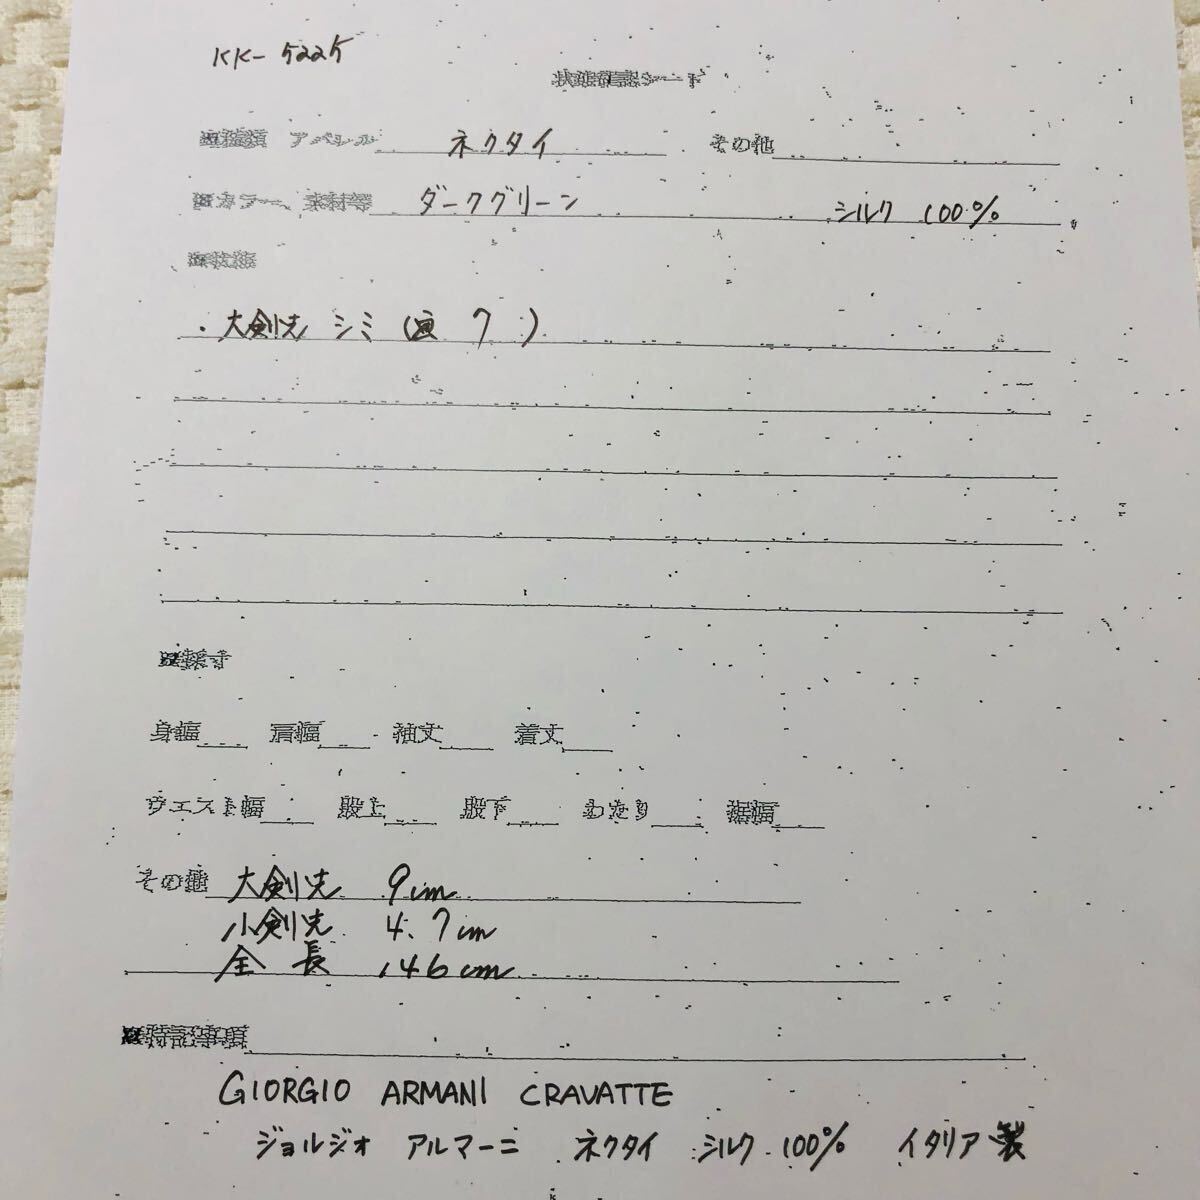 KK-5225
状態確認シート
■種類 アパレル ネクタイ その他
■カラー、素材等 ダークグリーン シルク 100%
■状態
・大剣先 シミ (画 7 )
■採寸
身幅 肩幅 袖丈 着丈
ウエスト幅 股上 股下 わたり 裾幅
その他 大剣先 9cm
小剣先 4.7cm
全長 146cm
■特記事項
GIORGIO ARMANI CRAVATTE
ジョルジオ アルマーニ ネクタイ シルク 100% イタリア製